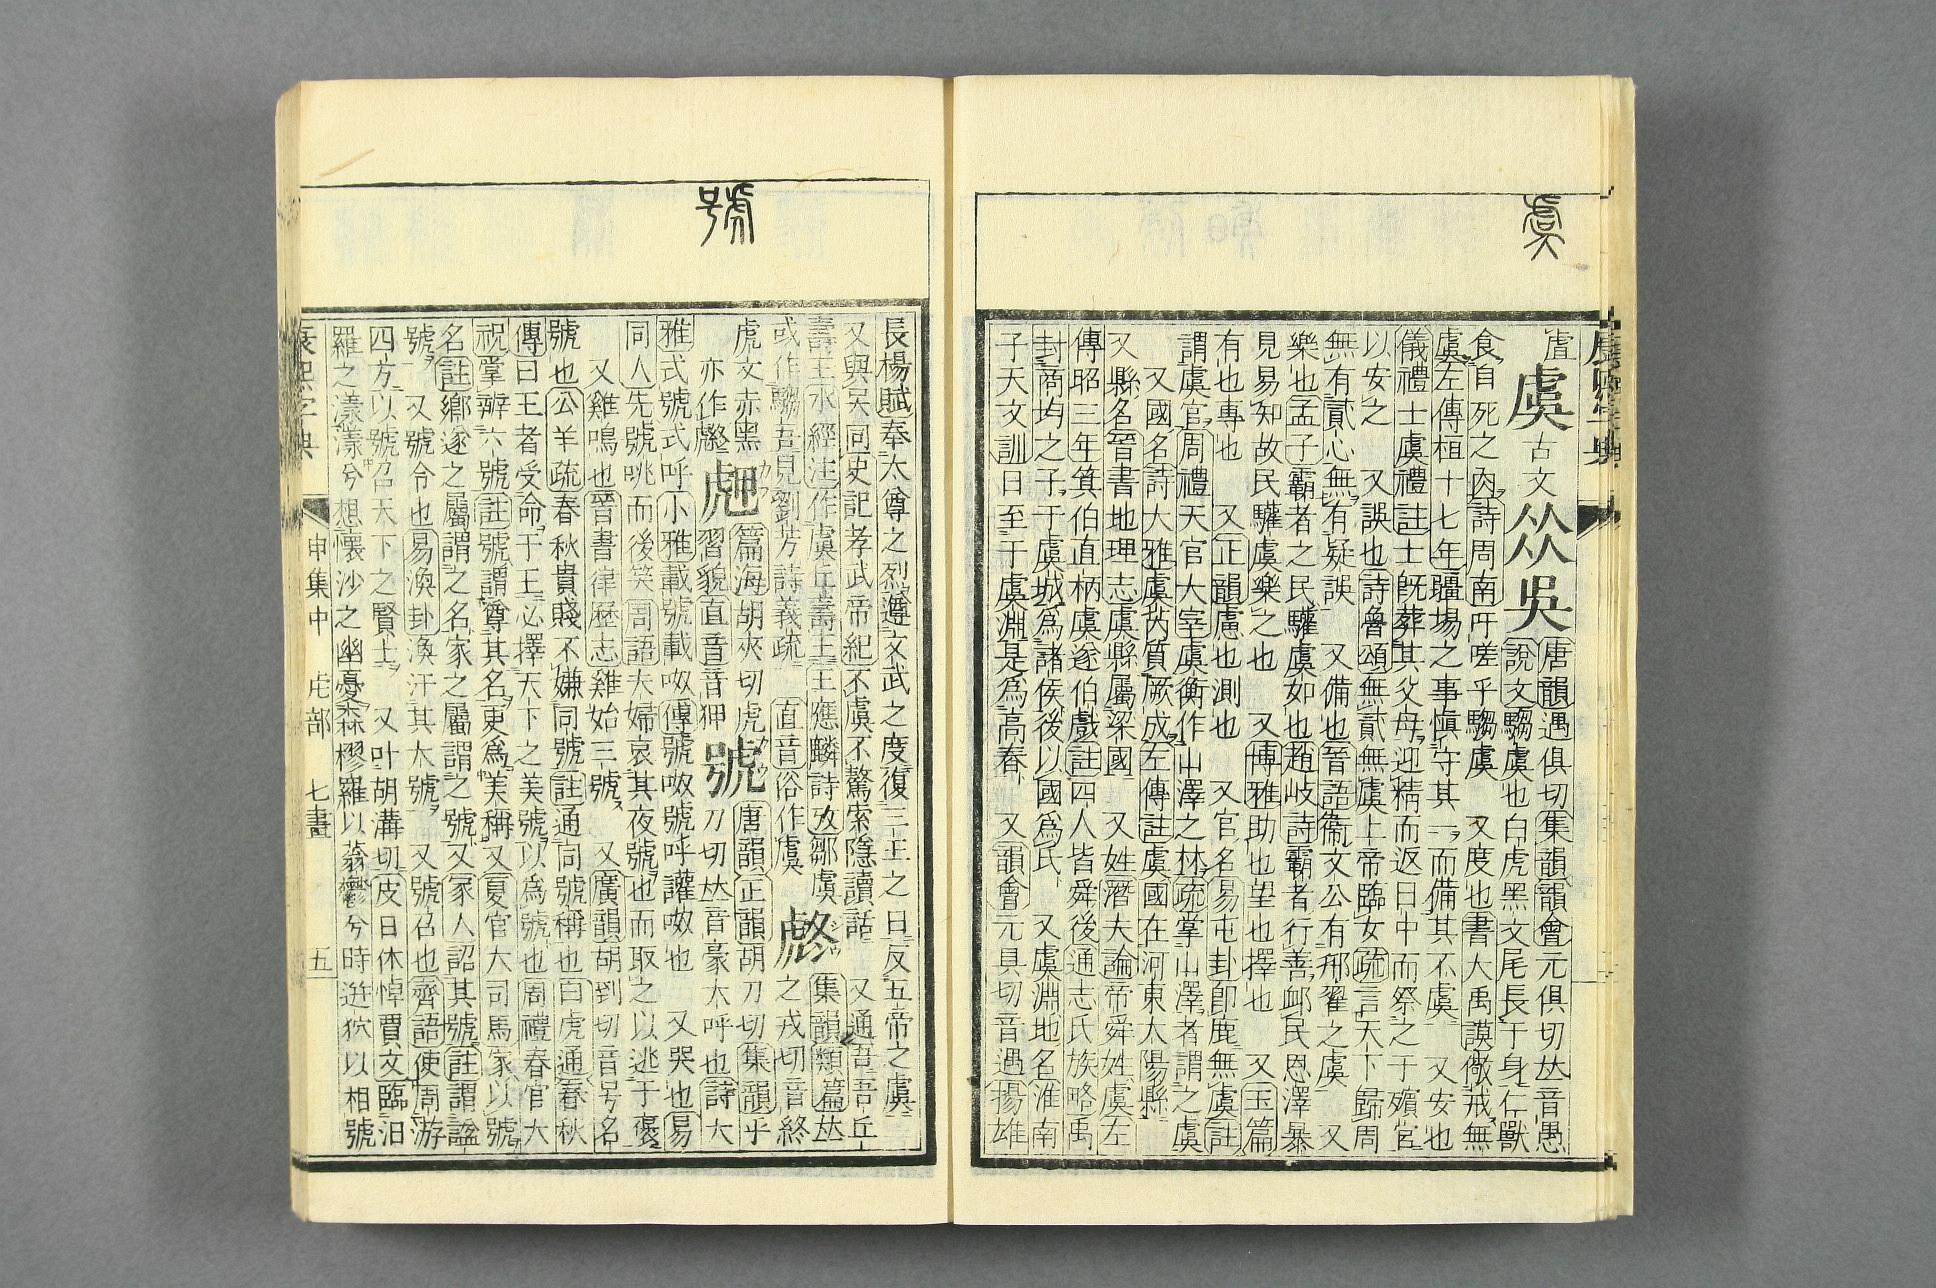 虞
虞 古文𠈌㒵
唐韻遇俱切集韻韻會元俱切𠀤音愚
說文騶虞也白虎黑文尾長于身仁獸
食自死之肉詩周南吁嗟乎騶虞 又度也書大禹謨儆戒無
虞左傳桓十七年疆埸之事愼守其一而備其不虞 又安也
儀禮士虞禮註士旣葬其父母迎精而返日中而祭之于殯宮
以安之 又誤也詩魯頌無貳無虞上帝臨女疏言天下歸周
無有貳心無有疑誤 又備也晉語衞文公有邢翟之虞 又
樂也孟子霸者之民驩虞如也趙岐註霸者行善卹民恩澤暴
見易知故民驩虞樂之也 又博雅助也望也擇也 又玉篇
有也專也 又正韻慮也測也 又官名易屯卦卽鹿無虞註
謂虞官周禮天官大宰虞衡作山澤之材疏掌山澤者謂之虞
又國名詩大雅虞芮質厥成左傳註虞國在河東太陽縣
又縣名晉書地理志虞縣屬梁國 又姓潛夫論帝舜姓虞左
傳昭三年箕伯直柄虞遂伯戲註四人皆舜後通志氏族略禹
封商均之子于虞城爲諸侯後以國爲氏 又虞淵地名淮南
子天文訓日至于虞淵是爲高舂 又韻會元具切音遇揚雄
號
長楊賦奉太尊之烈遵文武之度復三王之田反五帝之虞
又與吳同史記孝武帝紀不虞不驁索隱讀話 又通吾吾丘
壽王水經注作虞丘壽王王應麟詩攷鄒虞
或作騶吾見劉芳詩義疏 直音俗作虞
集韻類篇𠀤
之戎切音終
虎文赤黑
亦作
篇海胡夾切虎
習貌直音音狎
號
唐韻正韻胡刀切集韻乎
刀切𠀤音豪大呼也詩大
雅式號式呼小雅載號載呶傳號呶號呼讙呶也 又哭也易
同人先號咷而後笑周語夫婦哀其夜號也而取之以逃于褒
又雞鳴也晉書律歷志雞始三號 又廣韻胡到切音号名
號也公羊疏春秋貴賤不嫌同號註通同號稱也白虎通春秋
傳曰王者受命于王必擇天下之美號以爲號也周禮春官大
祝掌辨六號註號謂尊其名更爲美稱 又夏官大司馬家以號
名註鄉遂之屬謂之名家之屬謂之號 又家人詔其號註謂諡
號 又號令也易渙卦渙汗其大號 又號召也齊語使周游
四方以號召天下之賢士 又叶胡溝切皮日休悼賈文臨汨
羅之漾漾兮想懷沙之幽憂森樛羅以蓊鬱兮時迸狖以相號
康熙字典 申集中 虍部 七畫 五